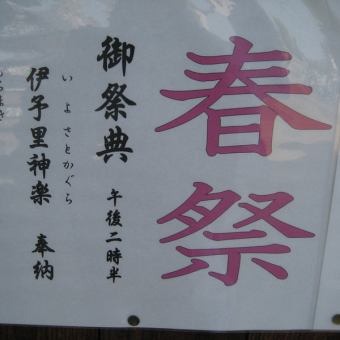 春祭
御祭典 午後二時半
いよさとかぐら
伊予里神楽 奉納